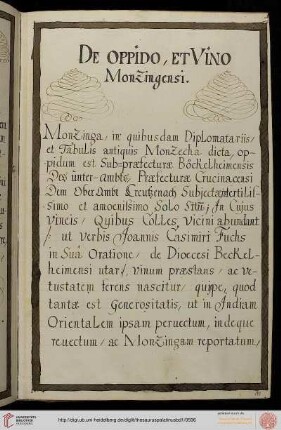 DE OPPIDO, ET VINO
Monzingensi.
Monzinga, in quibusdam Diplomatariis,
et Tabulis antiquis Monzecha dicta, op-
pidum est Sub-præfecturæ Böckelheimensis
Des unter-ambts Præfecturæ Crucinacensi
Dem Ober Ambt Creutzenach Subjectæ, fertilis-
simo et amoenissimo Solo Situm; in Cujus
vineis, Quibus Colles Vicini abundant
/: ut verbis Joannis Casimiri Fuchs
in Suâ Oratione, de Dioecesi Beckel-
heimensi utar/, vinum præstans, ac ve-
tustatem ferens nascitur, quippe, quod
tantæ est Generositatis, ut in Indiam
Orientalem ipsam pervectum, indeque
revectum, ac Monzingam reportatum,
http://digi.ub.uni-heidelberg.de/diglit/thesauruspalatinusbd1/0596